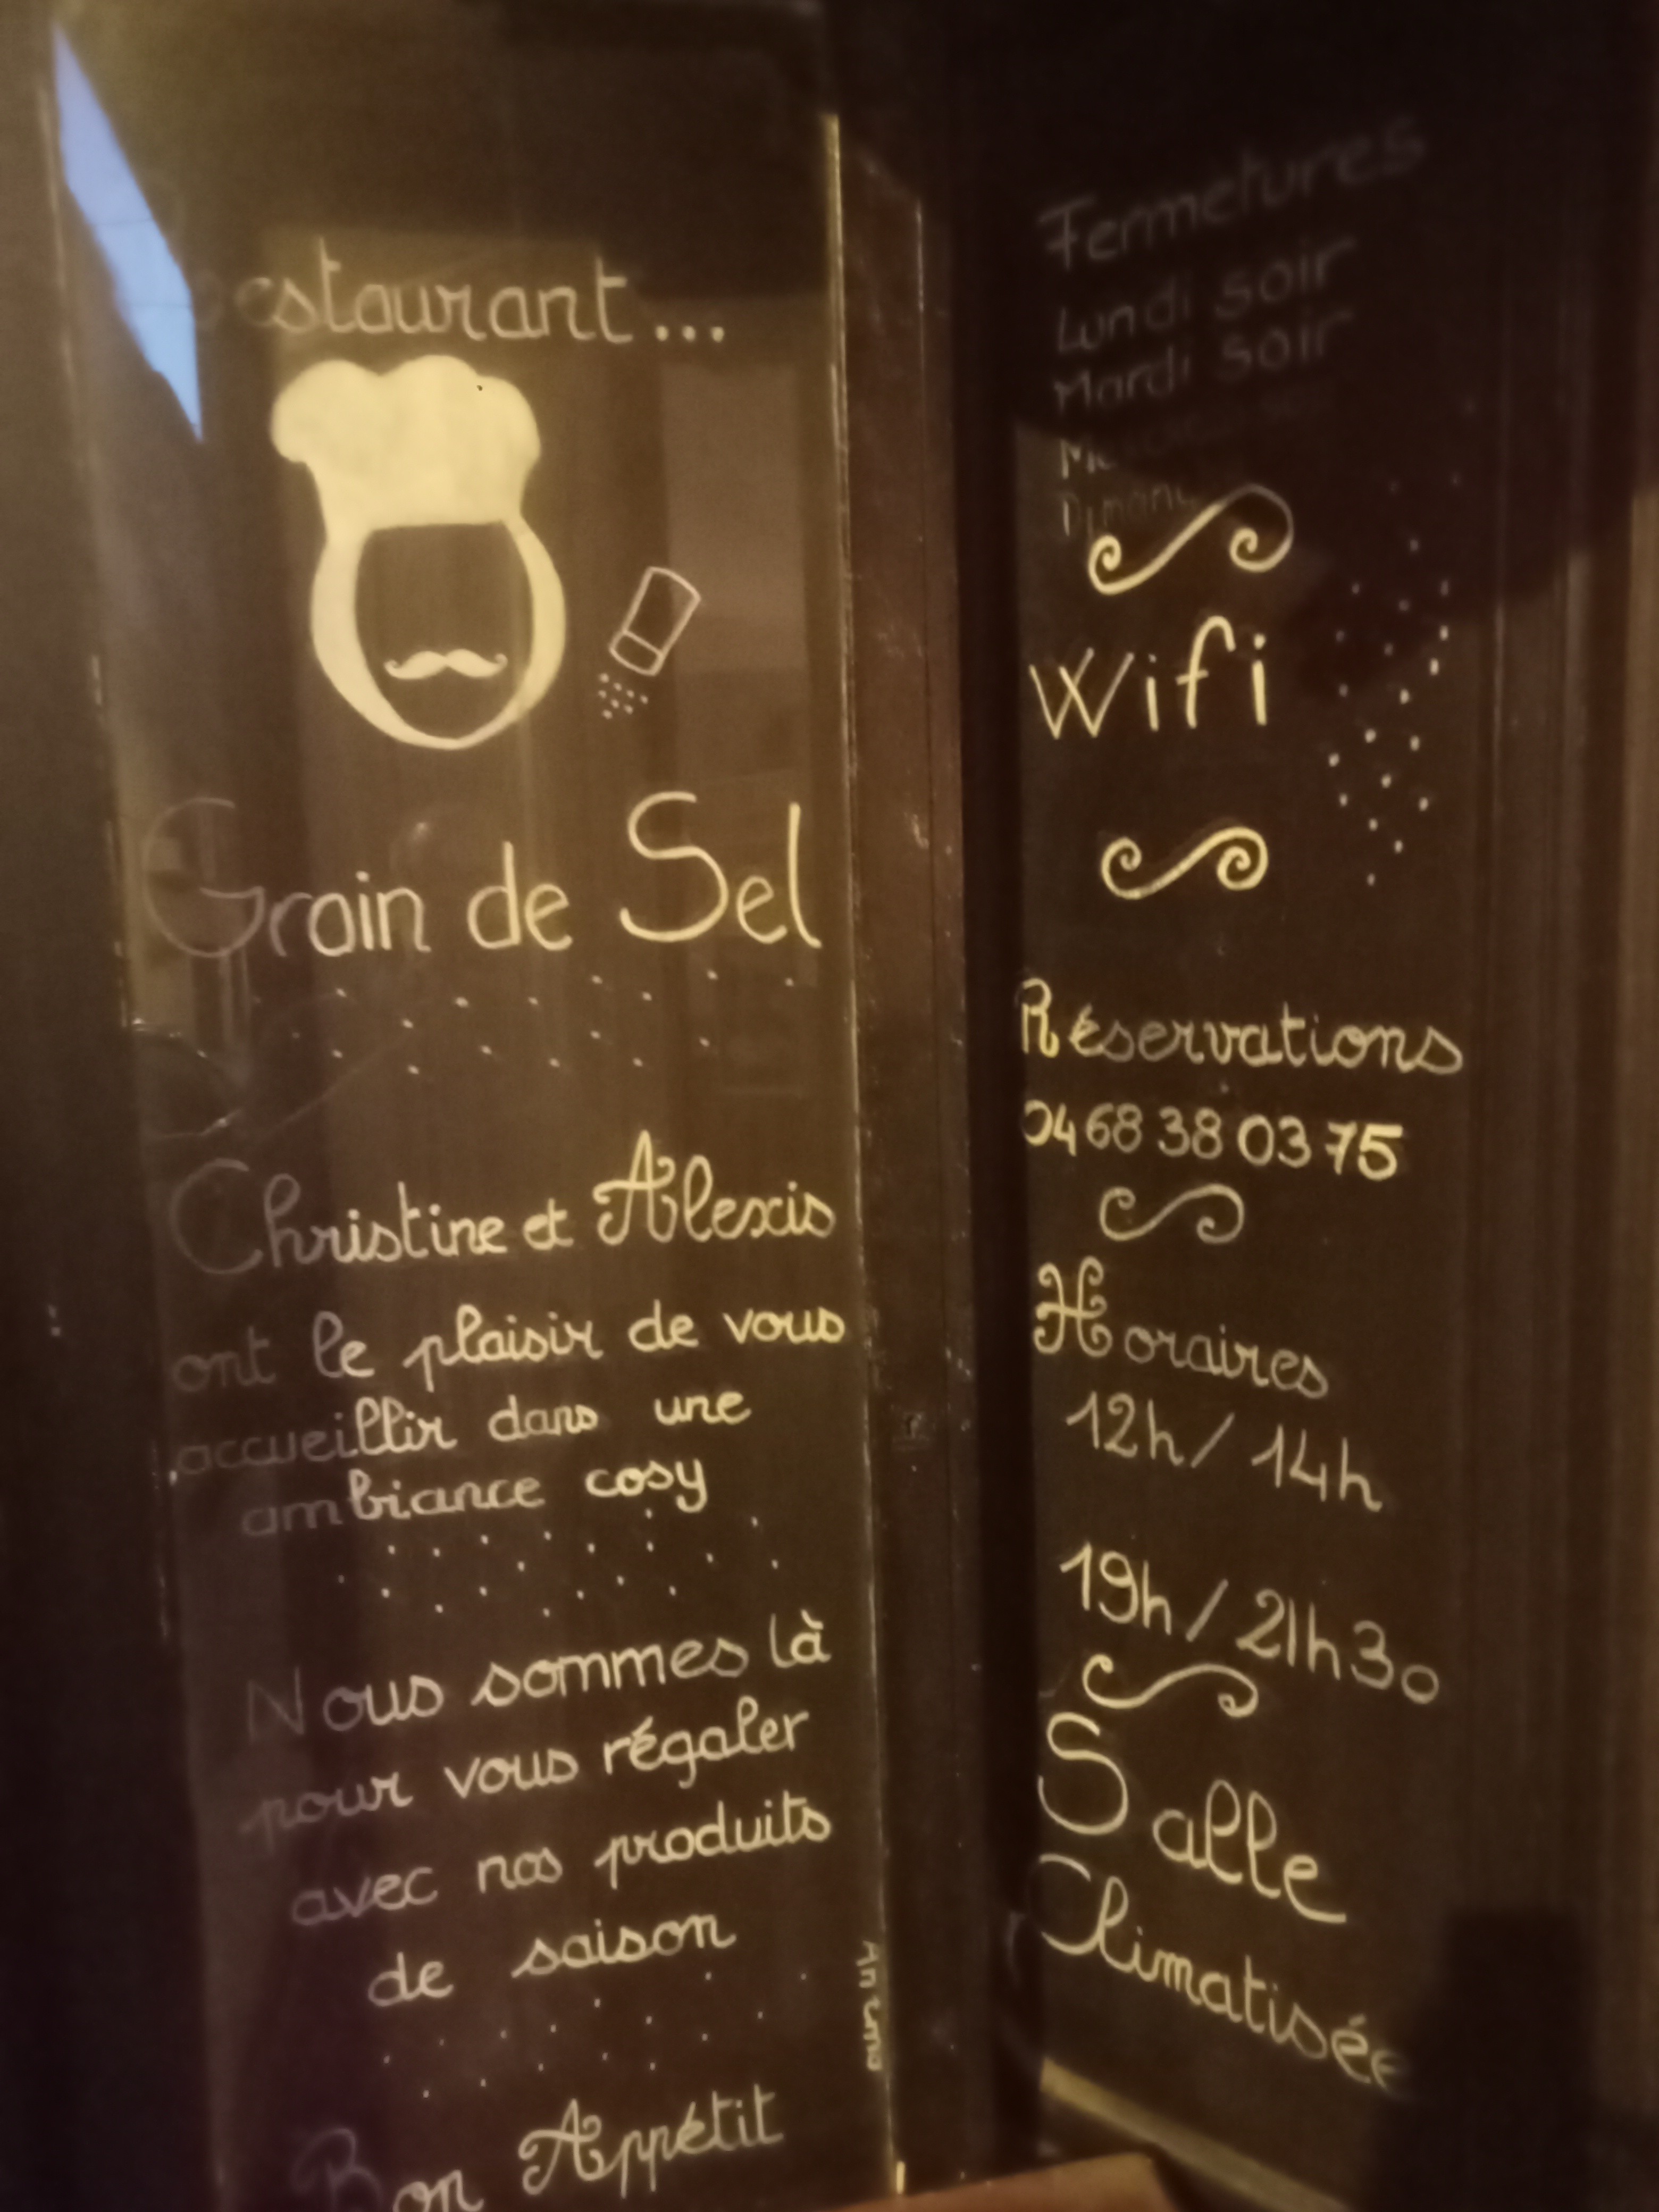 Restaurant...
Grain de Sel
Christine et Alexis
ont le plaisir de vous
accueillir dans une
ambiance cosy
Nous sommes là
pour vous régaler
avec nos produits
de saison
Bon Appétit
Fermetures
Lundi soir
Mardi soir
Wifi
Réservations
04 68 38 03 75
Horaires
12h / 14h
19h / 21h30
Salle
Climatisée